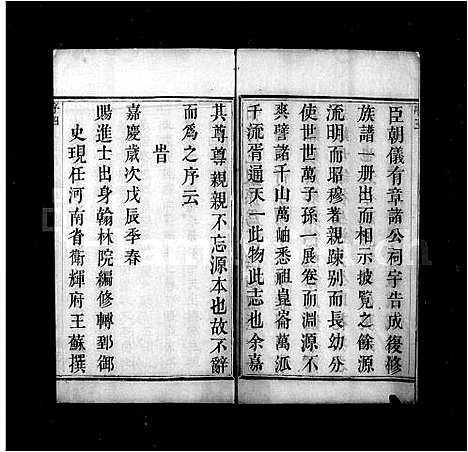 臣朝儀有章諸公祠宇告成復修
族譜一册出而相示披覽之餘源
流明而昭穆著親疎别而長幼分
使世世萬子孫一展卷而淵源不
爽譬諸千山萬岫悉祖崑崙萬派
千流胥通天一此物此志也余嘉
其尊尊親親不忘源本也故不辭
而爲之序云
旹
嘉慶歲次戊辰季春
賜進士出身翰林院編修轉到御
史現任河南省衛輝府王蘇撰